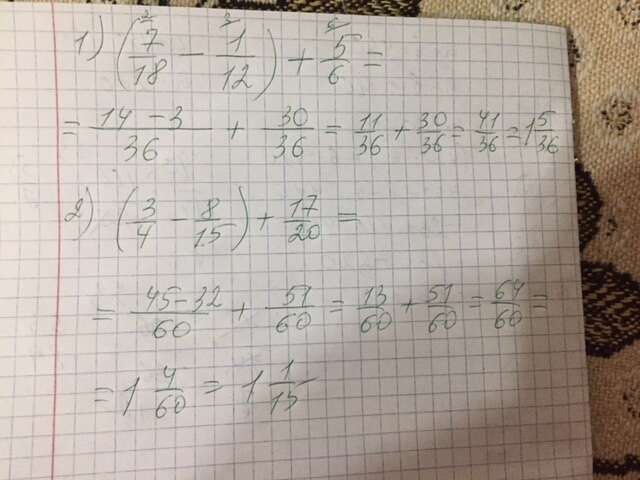 1) (7/18 - 1/12) + 5/6 =
= 14-3/36 + 30/36 = 11/36 + 30/36 = 41/36 = 1 5/36
2) (3/4 - 8/15) + 17/20 =
= 45-32/60 + 51/60 = 13/60 + 51/60 = 64/60 =
= 1 4/60 = 1 1/15